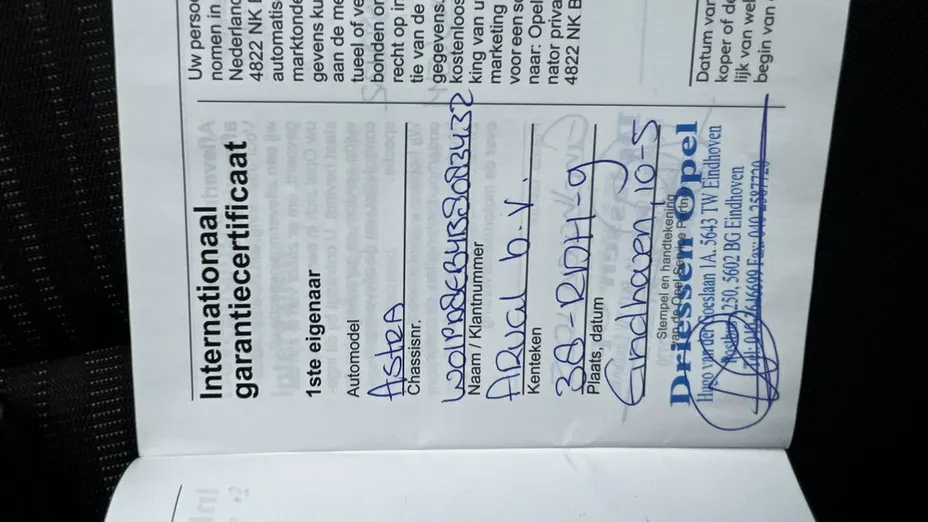 Internationaal
garantiecertificaat
1ste eigenaar
Automodel
Astra
Chassisnr.
Naam / Klantnummer
Arval b.v.
Kenteken
Plaats, datum
Eindhoven, 10-5
Stempel en handtekening
van de Opel Service Partner
Driessen Opel
Hugo van der Goeslaan 1A, 5643 TW Eindhoven
250, 5602 BG Eindhoven
Fax: 040-2587720
Uw perso
nomen in
Nederland
4822 NK B
automatis
marktonde
gevens ku
aan de me
tueel of ve
bonden or
recht op in
tie van de
gegevens.
kosteloos
king van u
marketing
voor een s
naar: Opel
nator priva
4822 NK B
Datum var
koper of de
lijk van wel
begin van